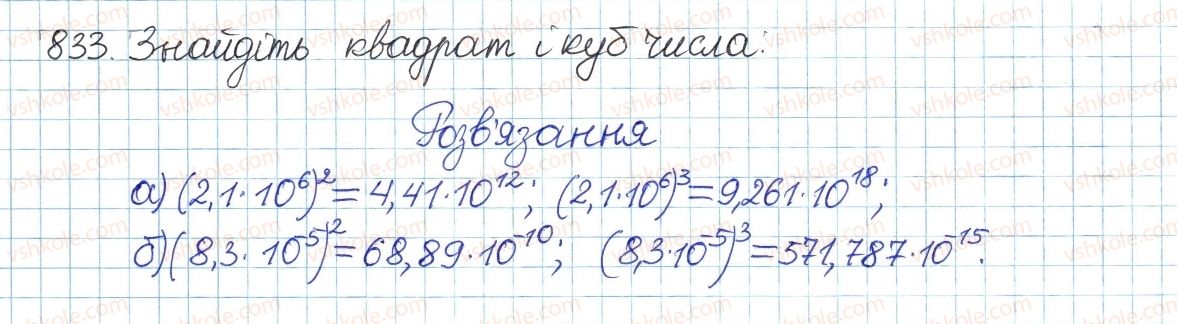 833. Знайдіть квадрат і куб числа:
Розв'язання
а) (2,1·10⁶)² = 4,41·10¹²; (2,1·10⁶)³ = 9,261·10¹⁸;
б) (8,3·10⁻⁵)² = 68,89·10⁻¹⁰; (8,3·10⁻⁵)³ = 571,787·10⁻¹⁵.
vshkole.com